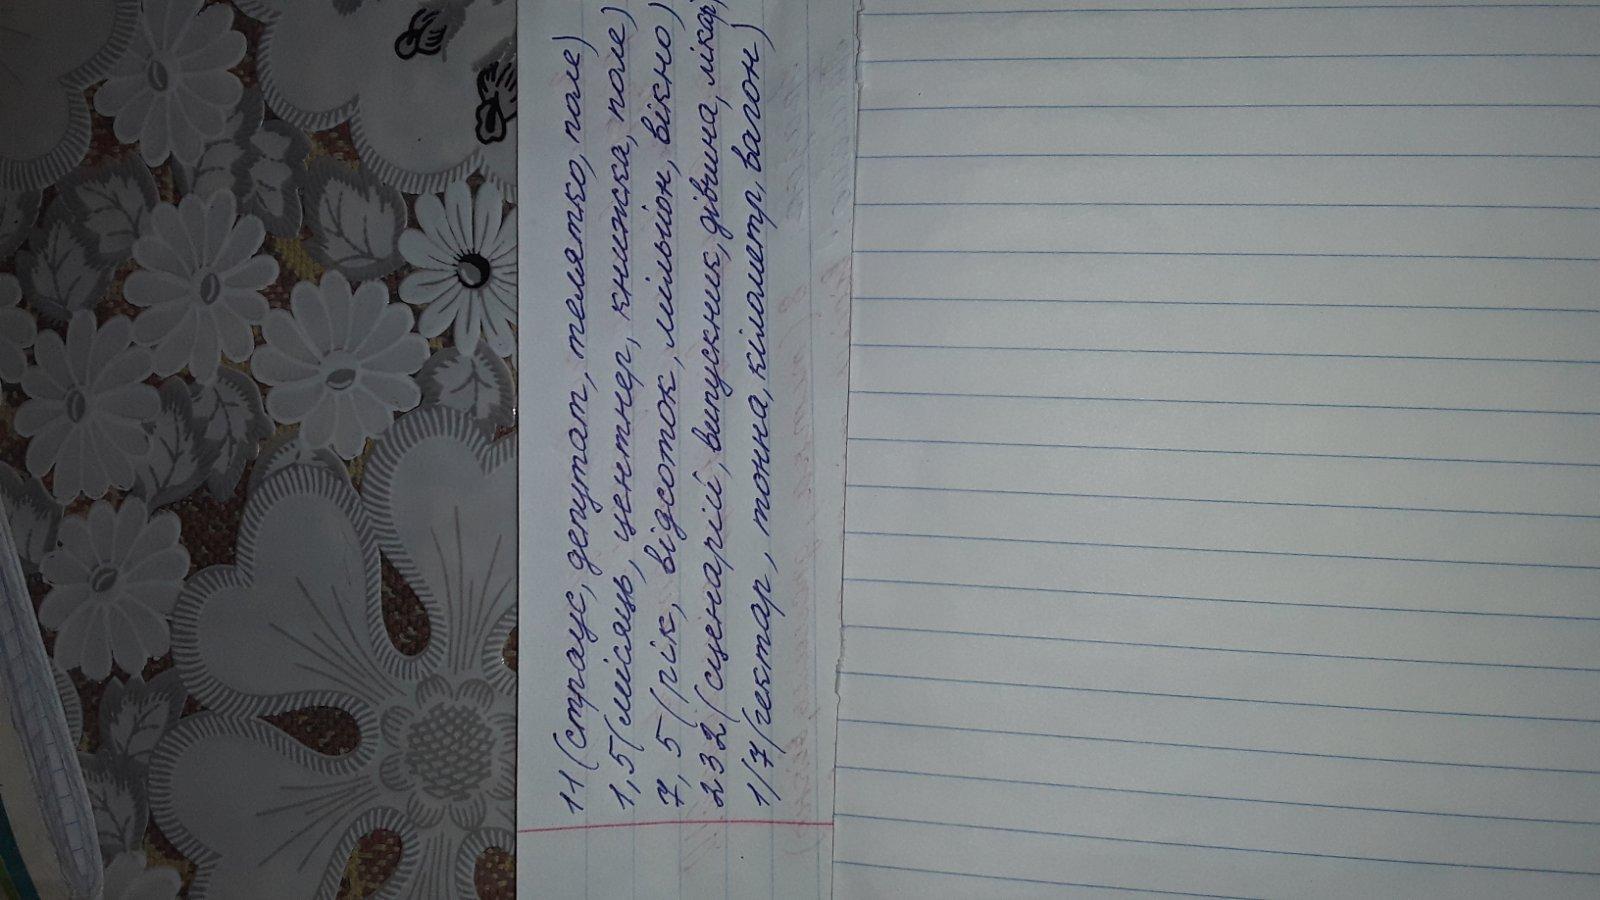 11 (страус, депутат, телятко, поле)
1,5 (місяць, центнер, книжка, поле)
7,5 (рік, відсоток, мільйон, вікно)
232 (сценарій, випускник, дівчина, лікар,
1/7 (гектар, тонна, кілометр, вагон)